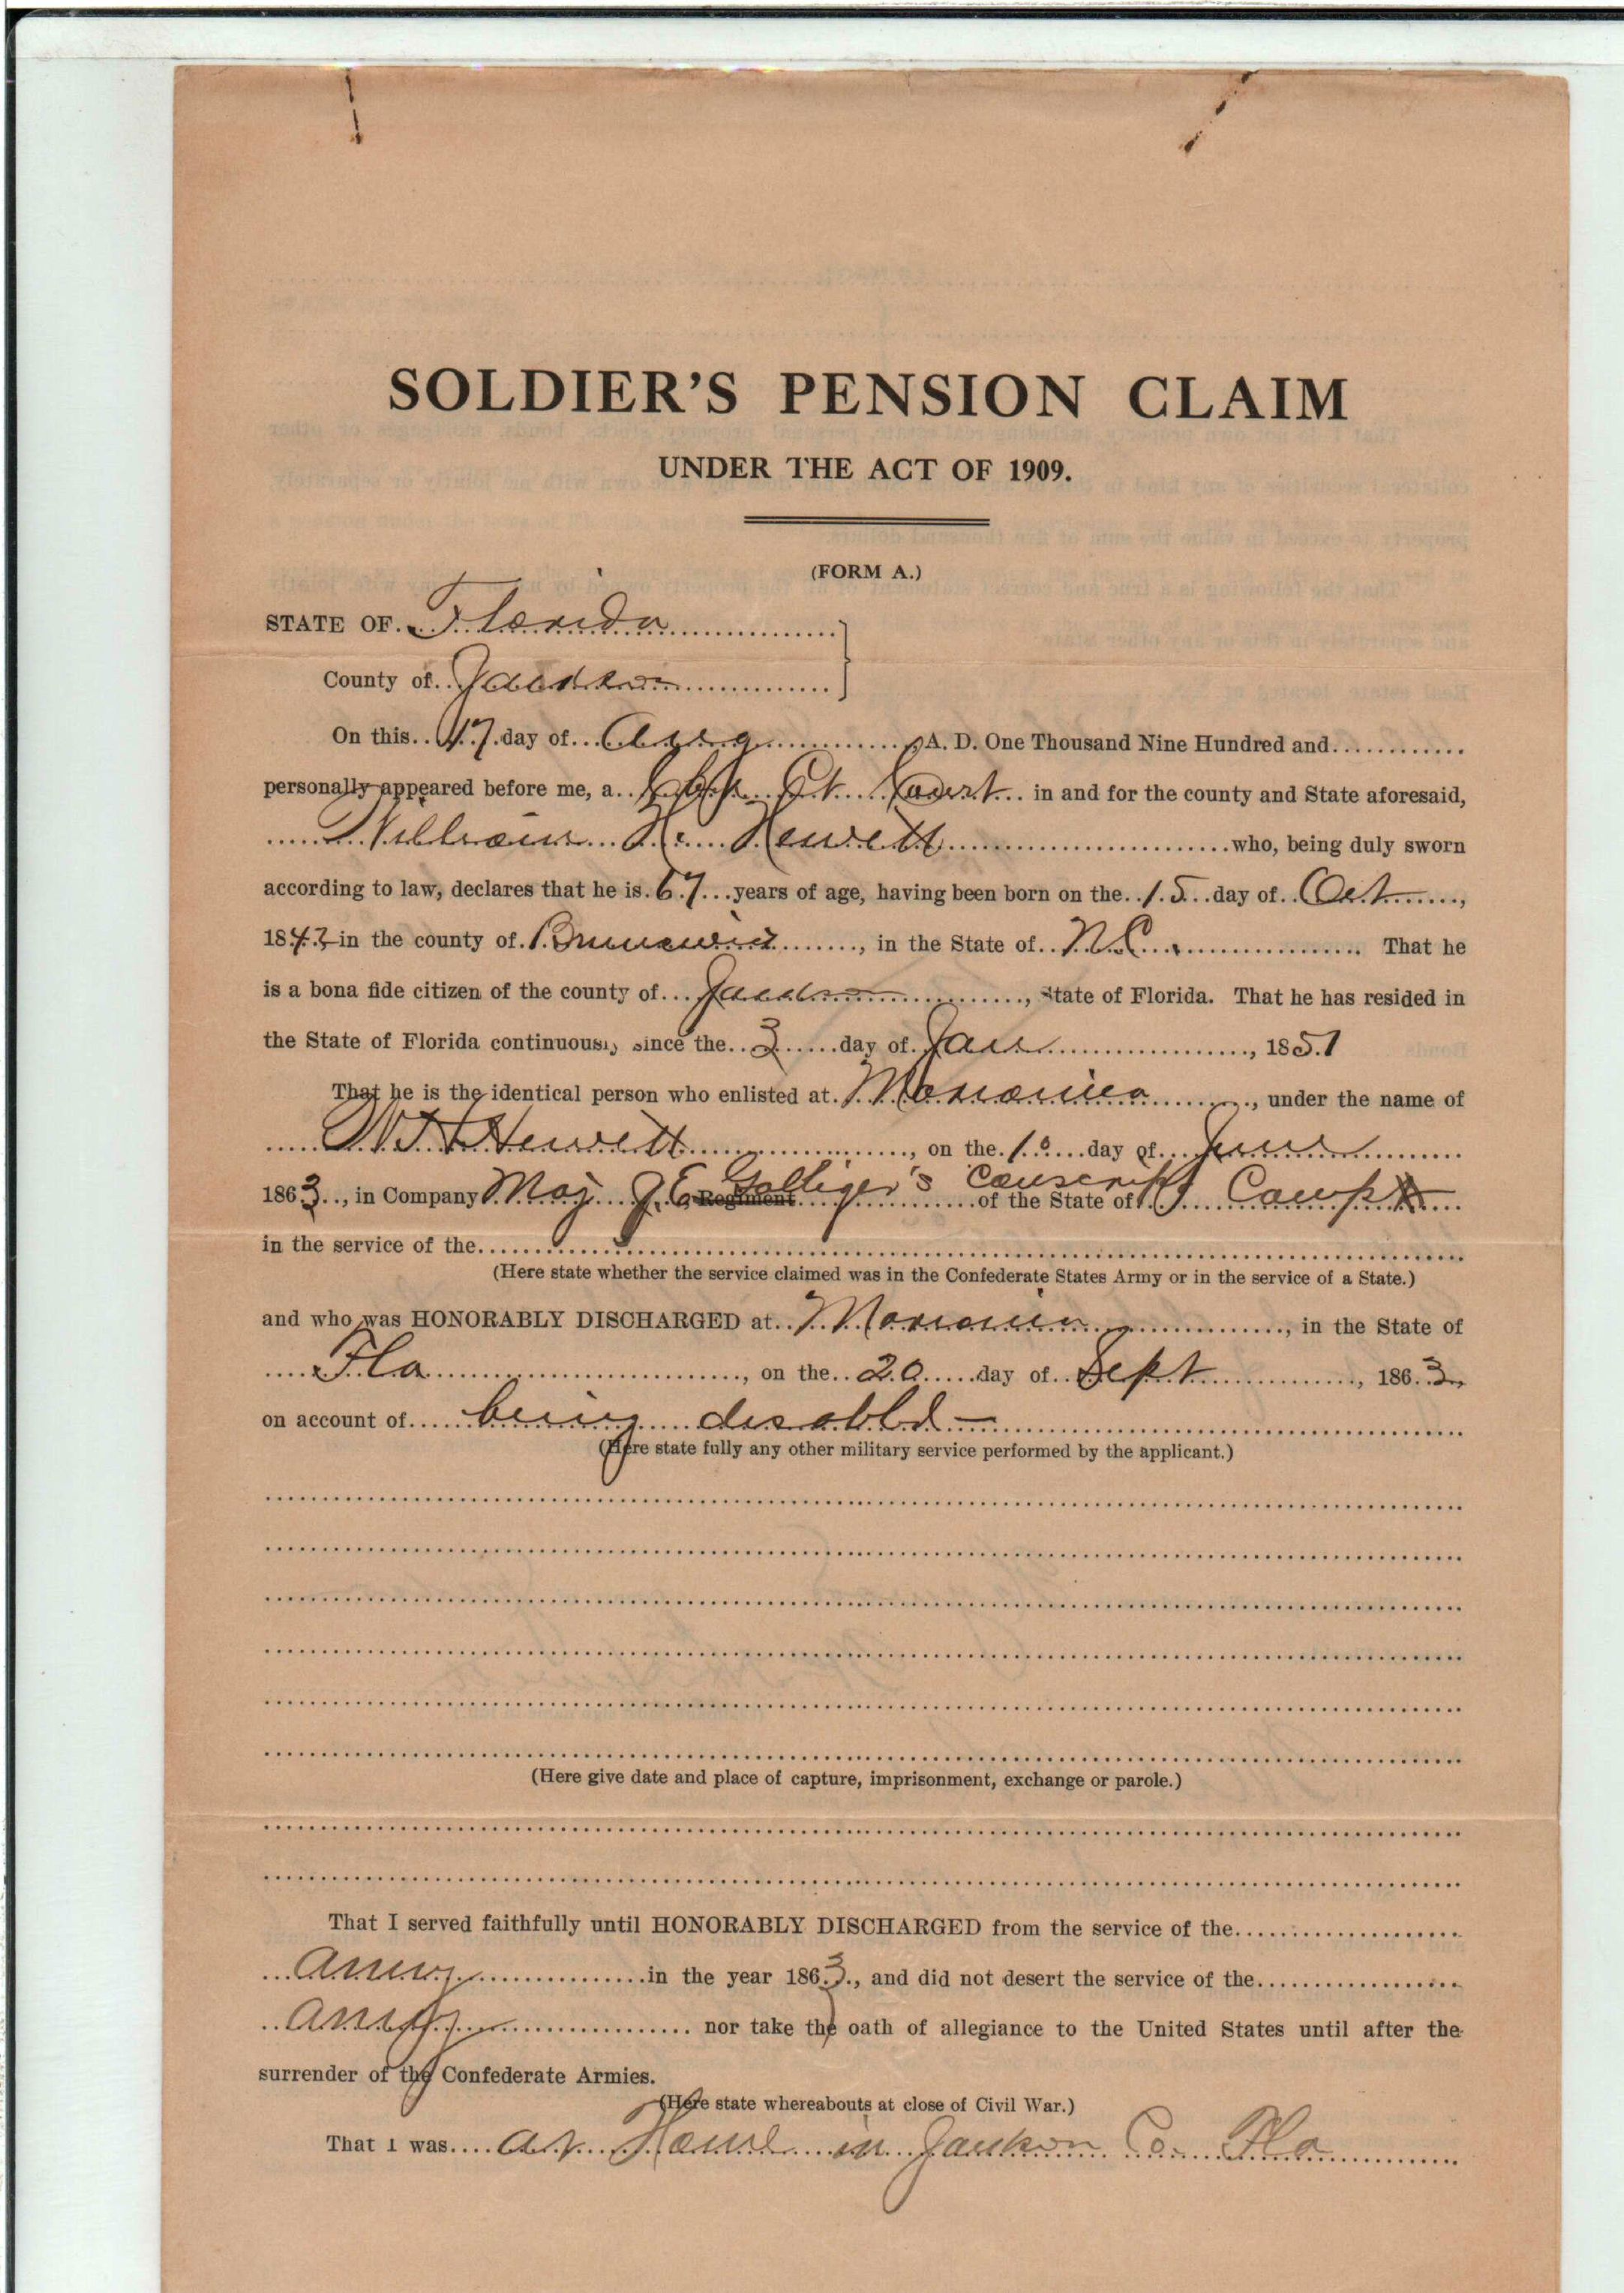 SOLDIER'S PENSION CLAIM
UNDER THE ACT OF 1909.
(FORM A.)
STATE OF Florida
County of Jackson
On this 17 day of Aug, A. D. One Thousand Nine Hundred and
personally appeared before me, a Clk Ct Court in and for the county and State aforesaid,
William H. Hewett who, being duly sworn
according to law, declares that he is 67 years of age, having been born on the 15 day of Oct,
1842 in the county of Brunswick, in the State of N.C. That he
is a bona fide citizen of the county of Jackson, State of Florida. That he has resided in
the State of Florida continuously since the 3 day of Jan, 1851
That he is the identical person who enlisted at Marianna, under the name of
W. H Hewett, on the 10 day of June
1863, in Company Maj J. E. Regiment Galliger's Conscript of the State of Camp
in the service of the
(Here state whether the service claimed was in the Confederate States Army or in the service of a State.)
and who was HONORABLY DISCHARGED at Marianna, in the State of
Fla, on the 20 day of Sept, 1863,
on account of being disabld
(Here state fully any other military service performed by the applicant.)
(Here give date and place of capture, imprisonment, exchange or parole.)
That I served faithfully until HONORABLY DISCHARGED from the service of the
Army in the year 1863, and did not desert the service of the
Army nor take the oath of allegiance to the United States until after the
surrender of the Confederate Armies.
(Here state whereabouts at close of Civil War.)
That I was at Home in Jackson Co. Fla